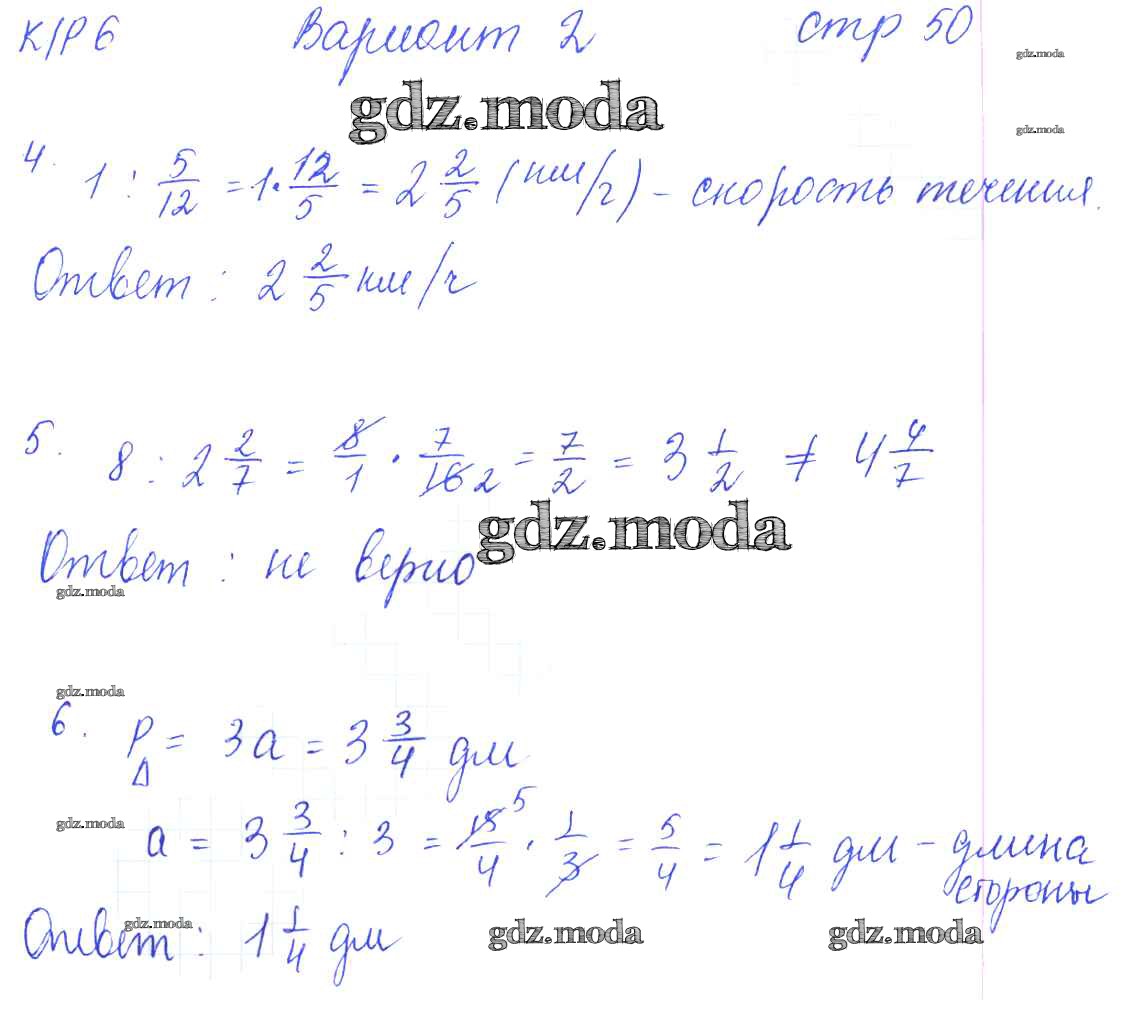 К/Р 6 Вариант 2 стр 50
gdz.moda
gdz.moda
gdz.moda
4. 1 : 5/12 = 1 · 12/5 = 2 2/5 (км/ч) – скорость течения.
Ответ : 2 2/5 км/ч
5. 8 : 2 2/7 = 8/1 · 7/16 2 = 7/2 = 3 1/2 ≠ 4 4/7
gdz.moda
Ответ : не верно
gdz.moda
gdz.moda
6. P△ = 3a = 3 3/4 дм
gdz.moda
a = 3 3/4 : 3 = 15/4 5 · 1/3 = 5/4 = 1 1/4 дм – длина
стороны
gdz.moda
Ответ : 1 1/4 дм
gdz.moda gdz.moda